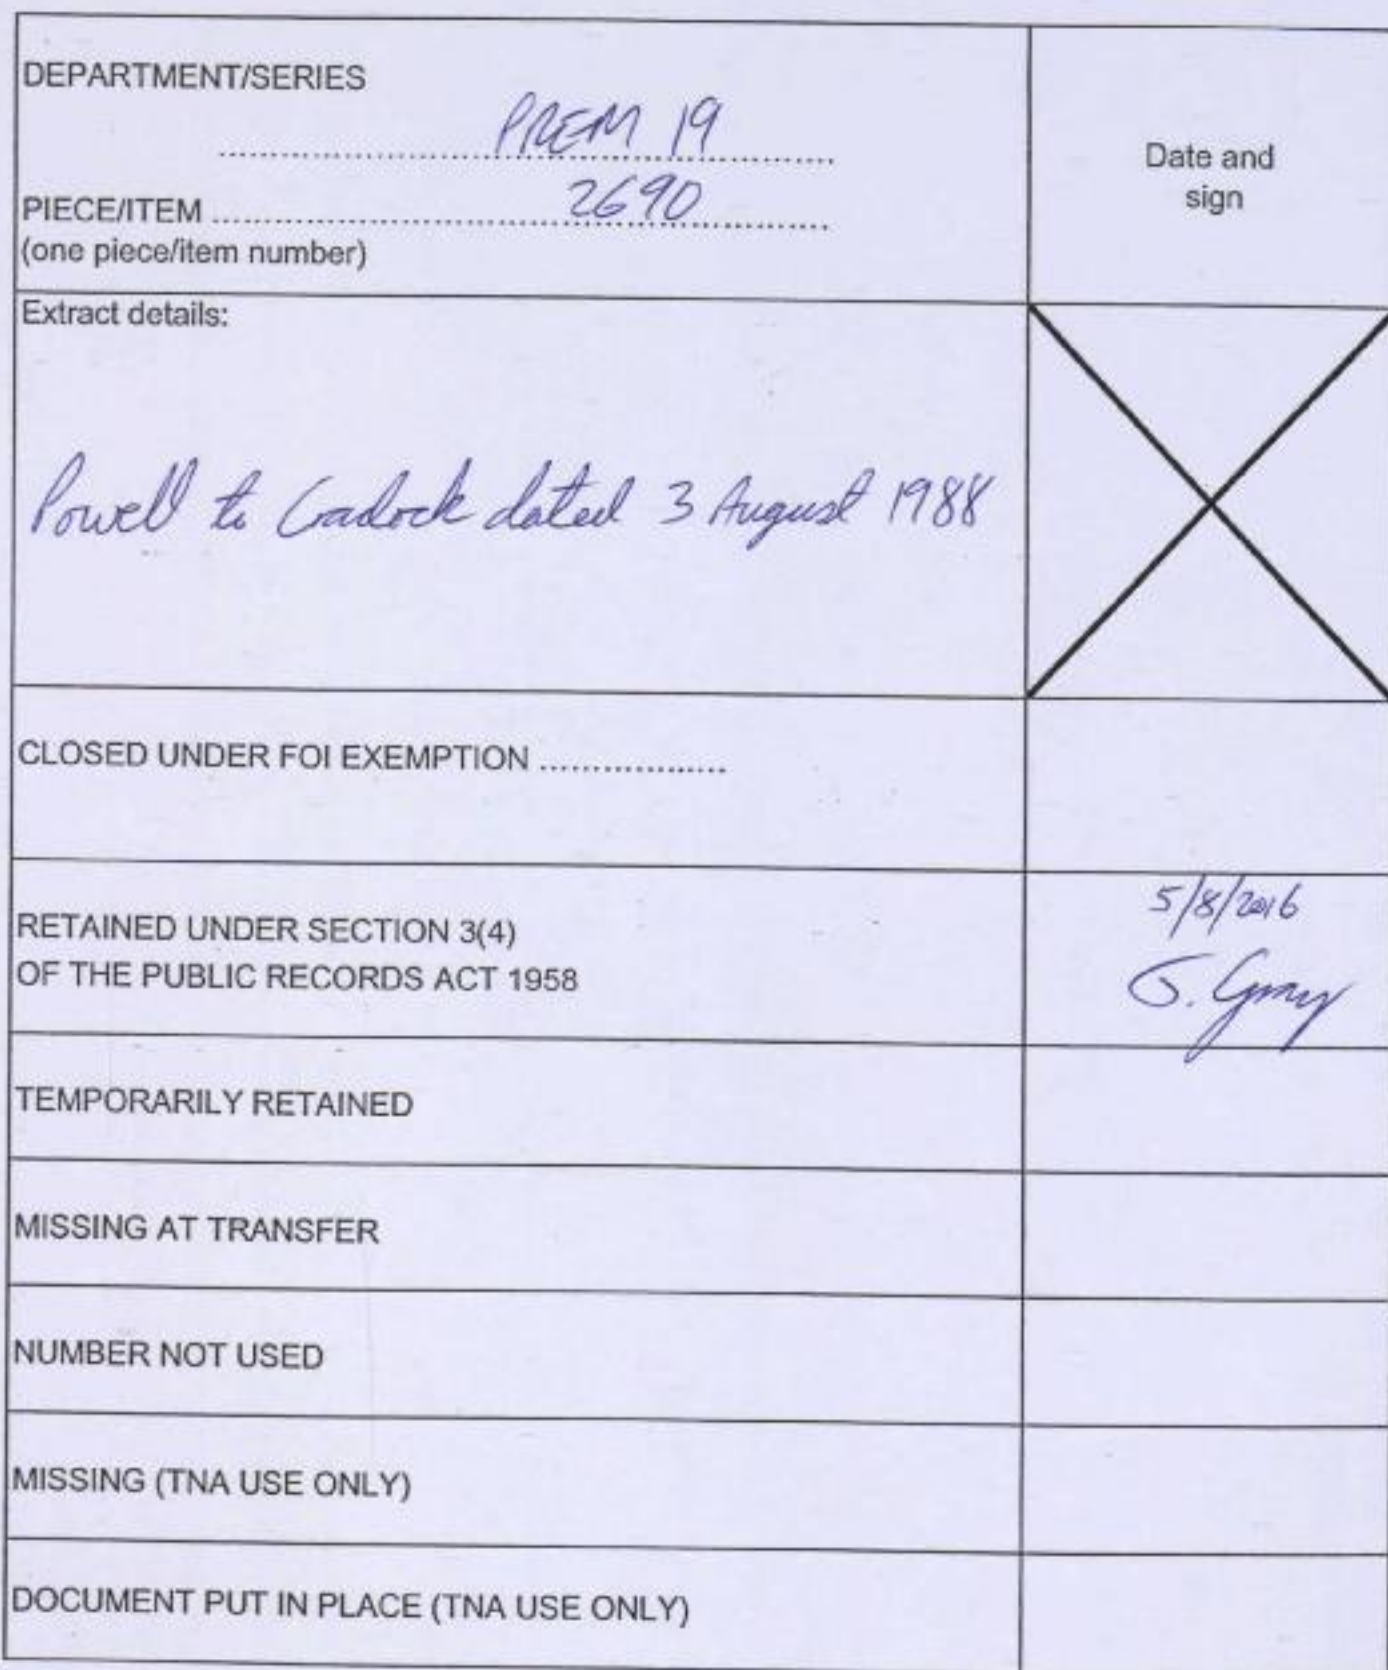 DEPARTMENT/SERIES
PREM 19
Date and
sign
PIECE/ITEM ........ 2690 ........
(one piece/item number)
Extract details:
Powell to Cradock dated 3 August 1988
CLOSED UNDER FOI EXEMPTION ..................
RETAINED UNDER SECTION 3(4)
OF THE PUBLIC RECORDS ACT 1958
5/8/2016
J. Gray
TEMPORARILY RETAINED
MISSING AT TRANSFER
NUMBER NOT USED
MISSING (TNA USE ONLY)
DOCUMENT PUT IN PLACE (TNA USE ONLY)